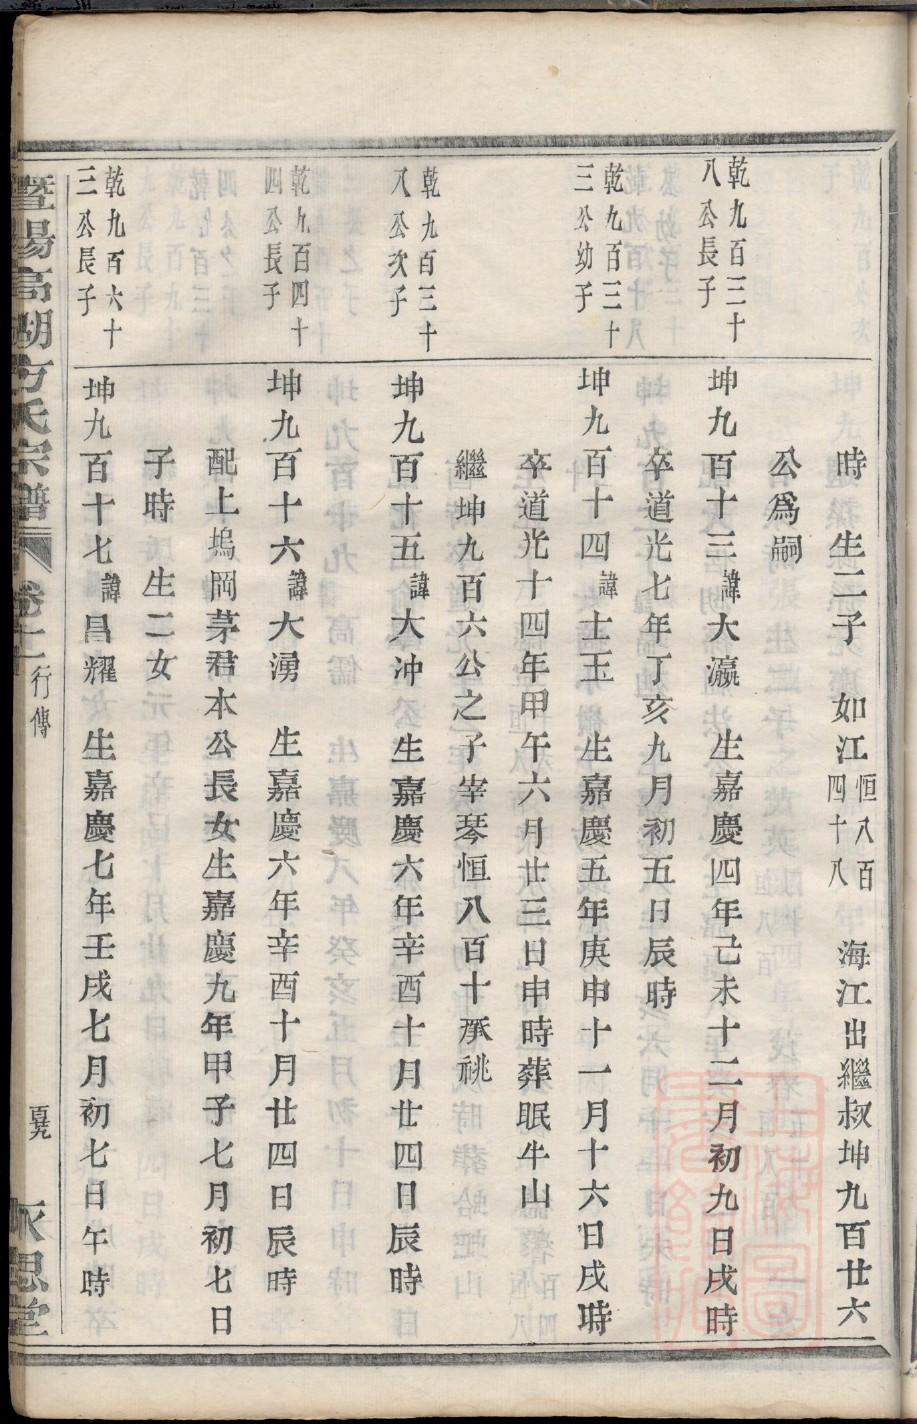 時 生二子 如江恒八百四十八 海江出繼叔坤九百廿六
公爲嗣
乾九百三十八公長子
坤九百十三諱大瀛 生嘉慶四年己未十二月初九日戌時
卒道光七年丁亥九月初五日辰時
乾九百三十三公幼子
坤九百十四諱士玉 生嘉慶五年庚申十一月十六日戌時
卒道光十四年甲午六月廿三日申時葬眠牛山
繼坤九百六公之子宰琴恒八百十承祧
乾九百三十八公次子
坤九百十五諱大沖 生嘉慶六年辛酉十月廿四日辰時
乾九百四十四公長子
坤九百十六諱大湧 生嘉慶六年辛酉十月廿四日辰時
配上塢岡茅君本公長女生嘉慶九年甲子七月初七日
子時 生二女
乾九百六十三公長子
坤九百十七諱昌耀 生嘉慶七年壬戌七月初七日午時
暨陽高湖方氏宗譜 卷十一 行傳 永思堂